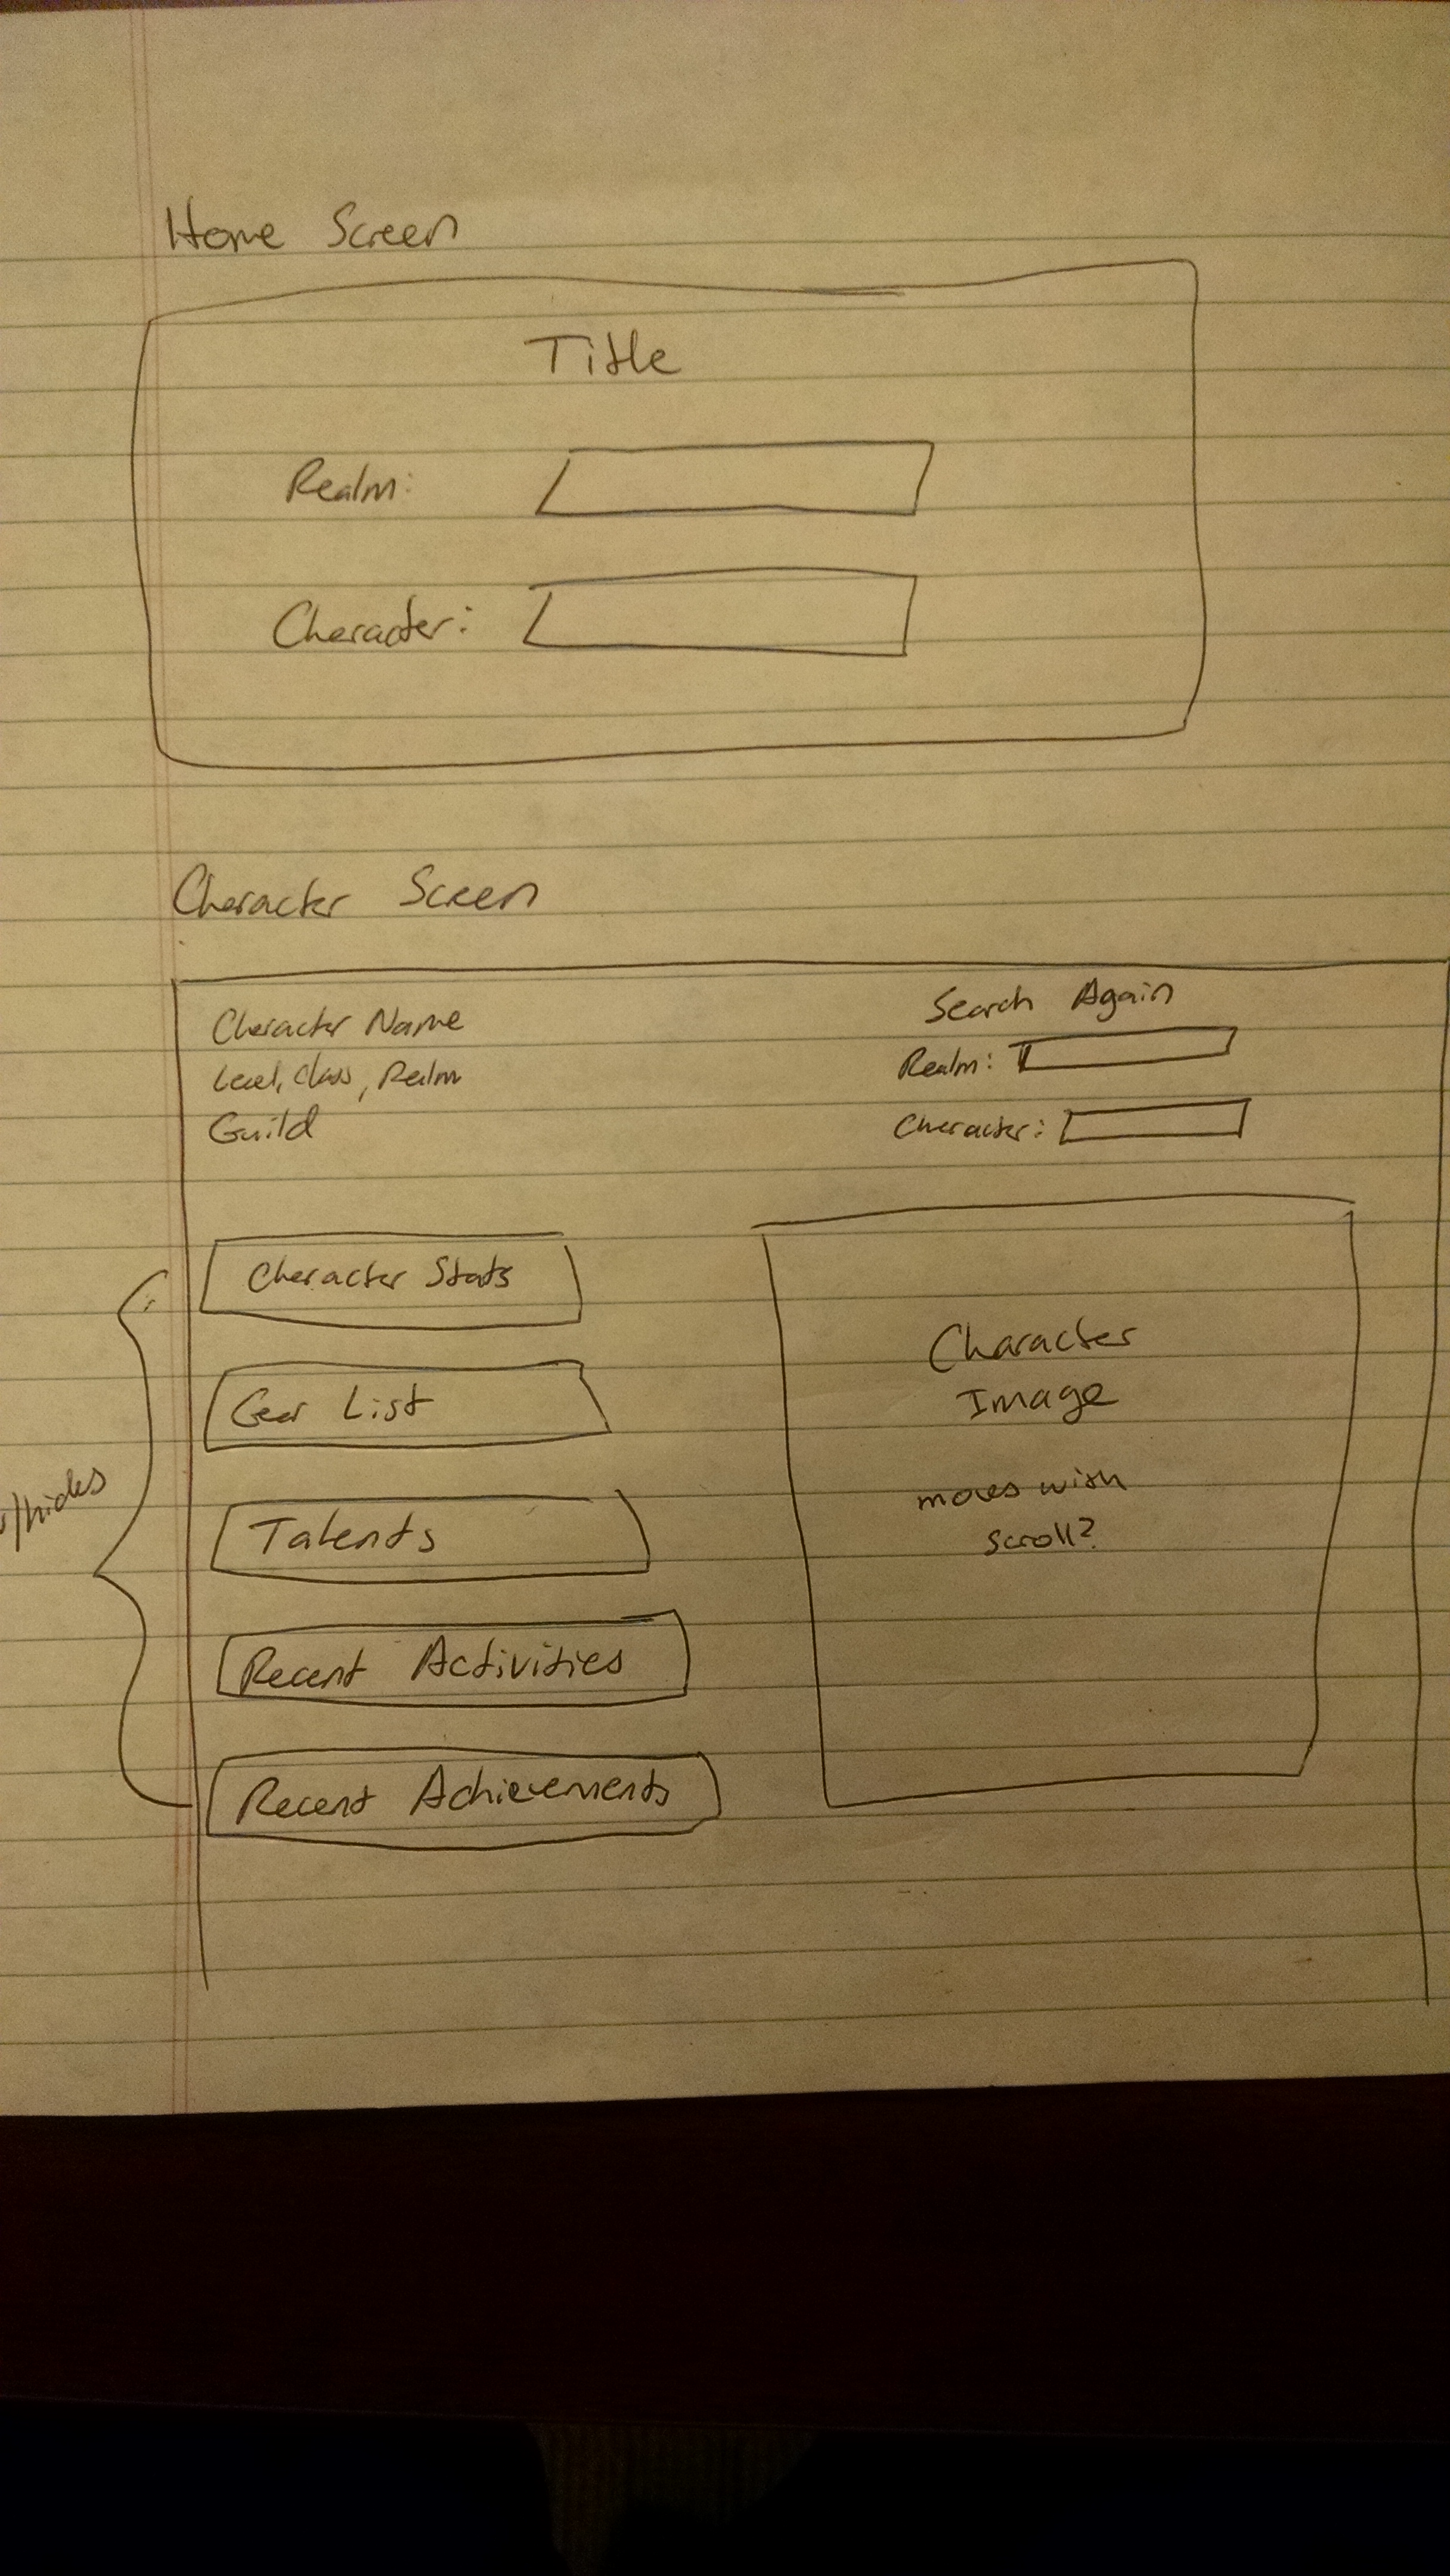 Home Screen
Title
Realm:
Character:
Character Screen
Character Name
Level, Class, Realm
Guild
Search Again
Realm:
Character:
Character Stats
Gear List
Talents
Recent Activities
Recent Achievements
/hides
Character
Image
moves with
scroll?